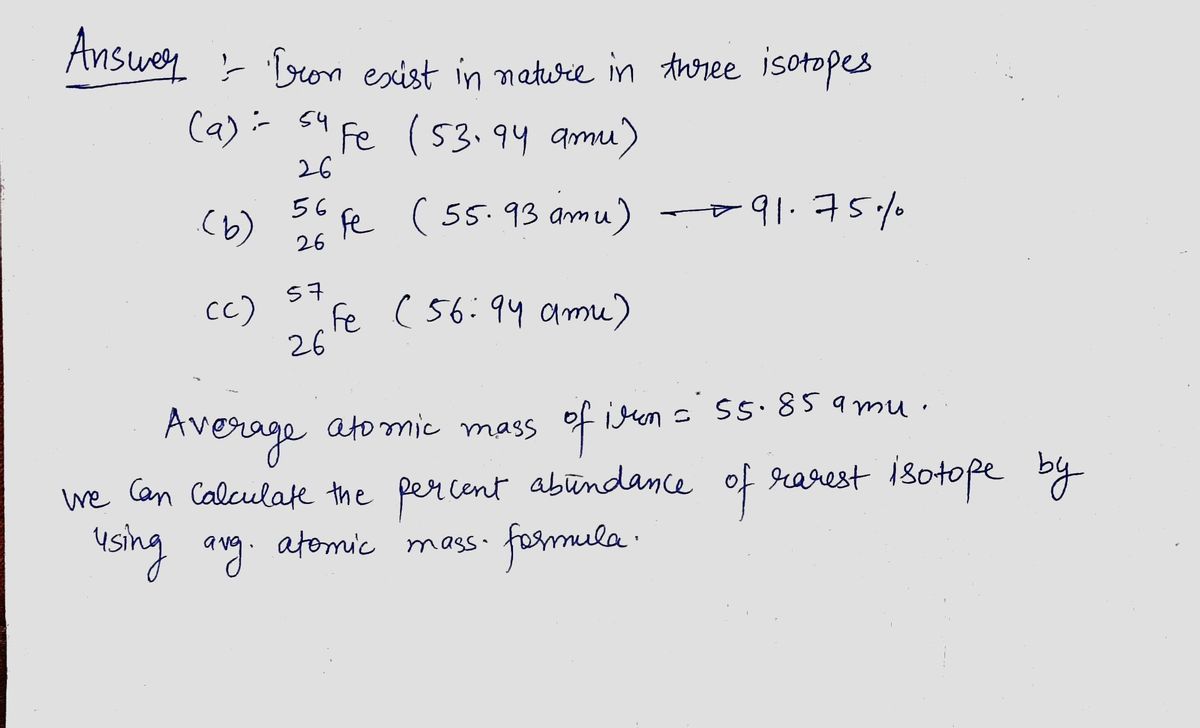 Answer :- Iron exist in nature in three isotopes
(a) :- 54 26 Fe (53.94 amu)
(b) 56 26 Fe (55.93 amu) → 91.75%
(c) 57 26 Fe (56.94 amu)
Average atomic mass of iron = 55.85 amu.
we Can Calculate the percent abundance of rarest isotope by
using avg. atomic mass. formula.